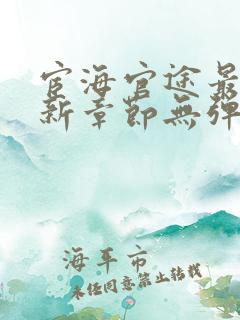 宦海官途最
新章節無彈
海平市
未經同意禁止轉載